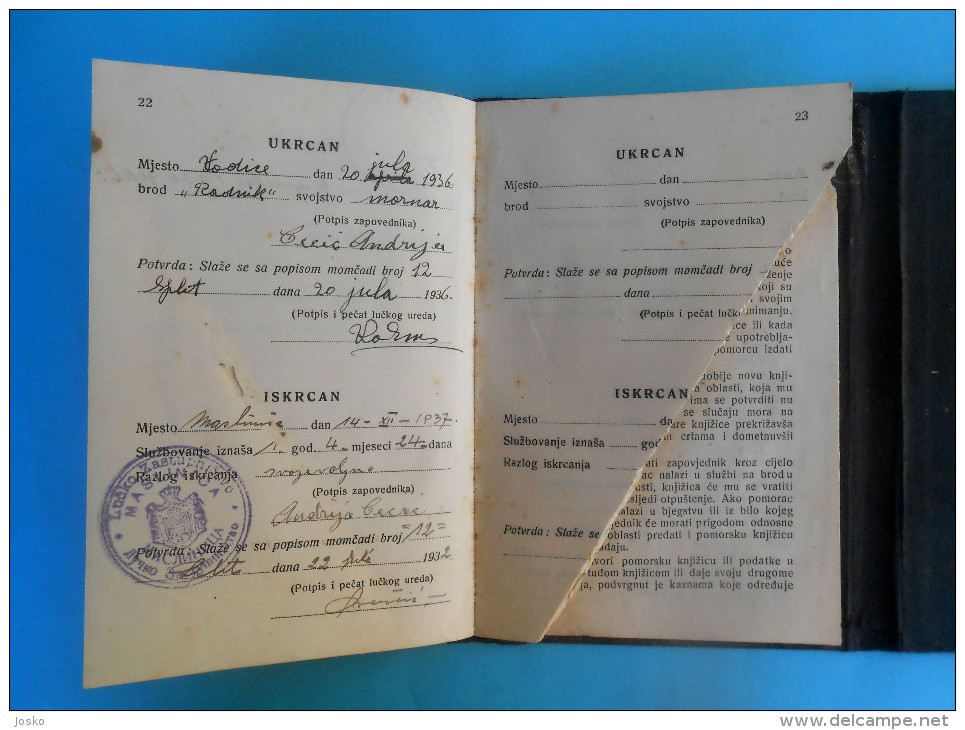 22
UKRCAN
Mjesto Vodice dan 20 jula 1936
brod „Radnik" svojstvo mornar
(Potpis zapovednika)
Andrija
Potvrda: Slaže se sa popisom momčadi broj 12
Split dana 20 jula 1936.
(Potpis i pečat lučkog ureda)
ISKRCAN
Mjesto Maslinica dan 14-XII-1937.
Službovanje iznaša 1 god. 4 mjeseci 24 dana
Razlog iskrcanja svojevoljno
(Potpis zapovednika)
Andrija
Potvrda: Slaže se sa popisom momčadi broj =12=
Split dana 22 193
(Potpis i pečat lučkog ureda)
Lučko Zastupništvo
MASLINICA
МАСЛИНИЦА
23
UKRCAN
Mjesto dan
brod svojstvo
(Potpis zapovednika)
Potvrda: Slaže se sa popisom momčadi broj
dana
(Potpis i pečat lučk
ISKRCAN
Mjesto
Službovanje iznaša god
Razlog iskrcanja
Potvrda: Slaže se
o
uće
ženje
koji su
svojim
nimanju.
ice ili kada
e upotreblja-
pomorcu izdati
obije novu knji-
a oblasti, koja mu
ima se potvrditi nu
se slučaju mora na
are knjižice prekrižavša
crtama i dometnuvši
ati zapovjednik kroz cijelo
nalazi u službi na brodu
asti, knjižica će mu se vratiti
sljedi otpuštenje. Ako pomorac
nalazi u bjegstvu ili iz bilo kojeg
jednik će morati prigodom odnosne
oblasti predati i pomorsku knjižicu
adaju.
vori pomorsku knjižicu ili podatke u
tuđom knjižicom ili daje svoju drugome
ja, podvrgnut je kaznama koje određuje
Josko
delcampe.net